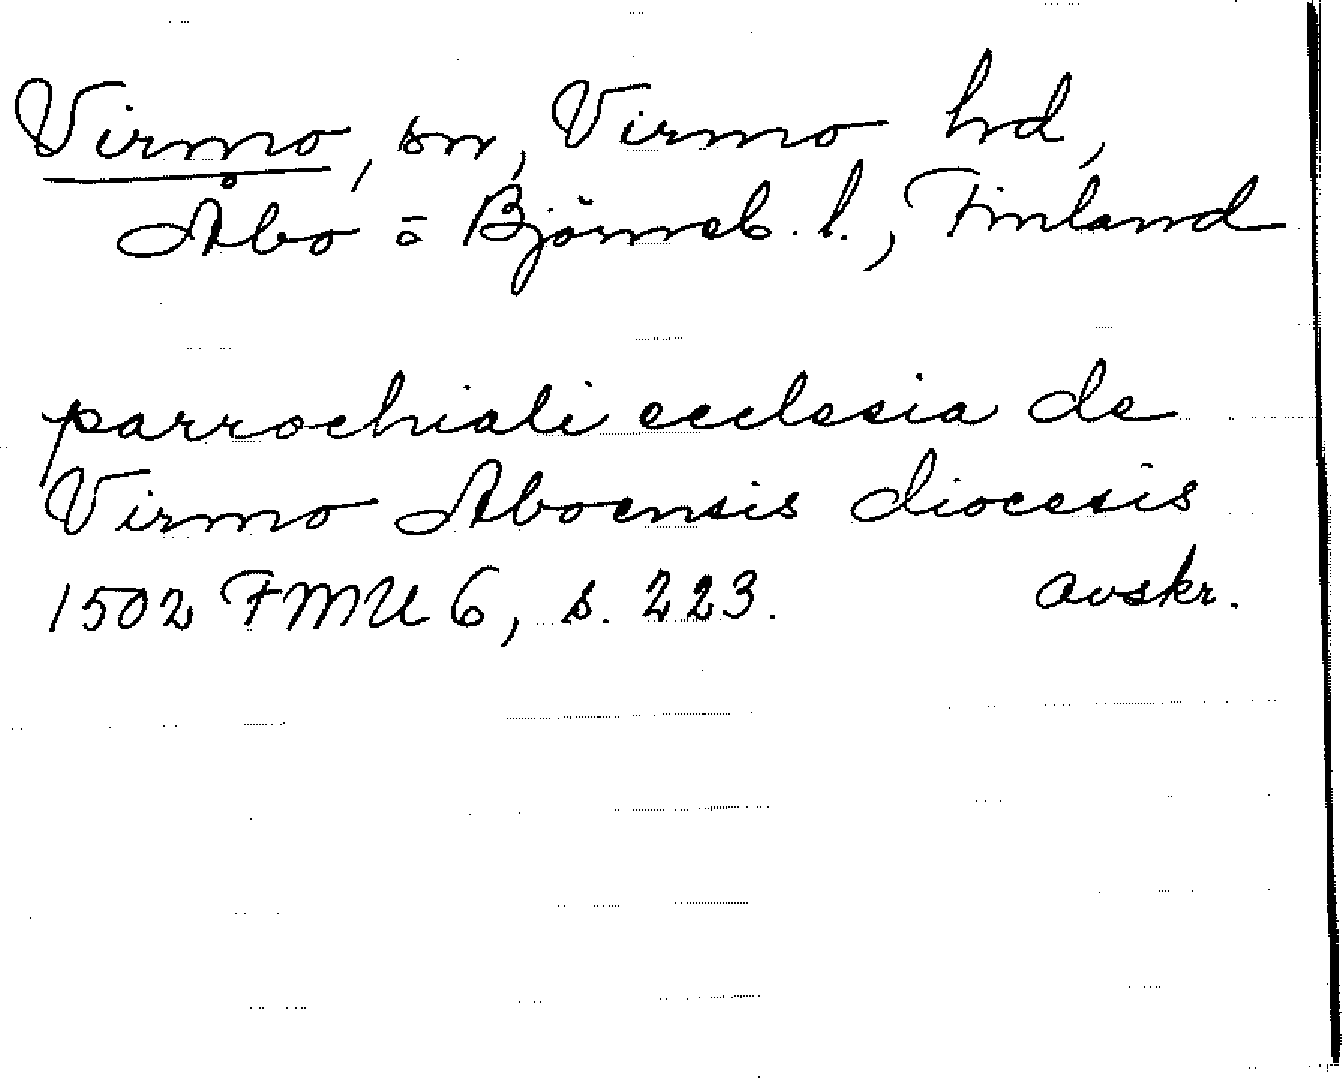 Virmo, sn, Virmo hd,
Åbo = Björneb. l., Finland
parrochiali ecclesia de
Virmo Aboensis diocesis
1502 FMU 6, s. 223. avskr.